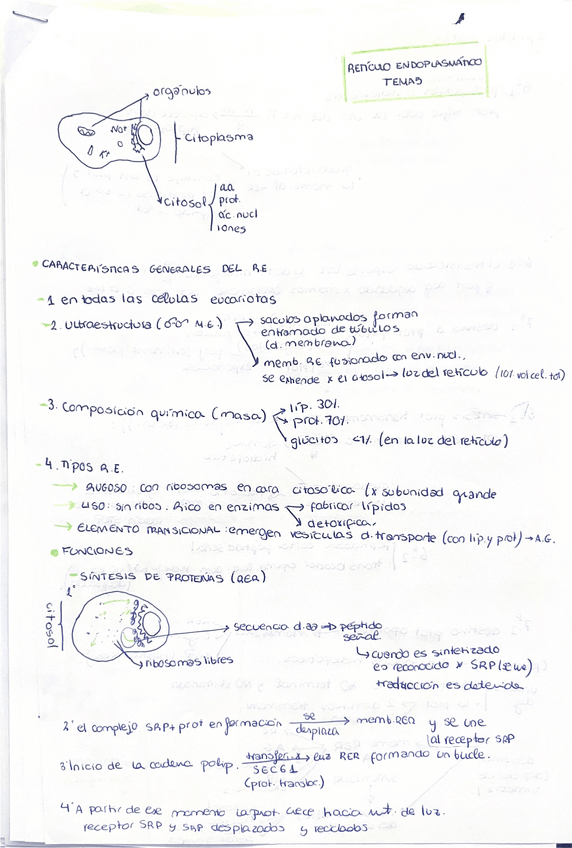 RETÍCULO ENDOPLASMÁTICO
TEMA 5
orgánulos
Citoplasma
citosol
aa
prot.
ác. nucl
iones
• CARACTERÍSTICAS GENERALES DEL R.E
- 1 en todas las células eucariotas
- 2. Ultraestructura ( M.E.) → sáculos aplanados forman
entramado de túbulos
(d. membrana)
memb. R.E. fusionado con env. nucl.,
se extiende x el citosol → luz del retículo (10% vol cel. tot)
- 3. Composición química (masa) → líp. 30%
→ prot. 70%
glúcitos <1% (en la luz del retículo)
- 4. Tipos R.E.
→ RUGOSO con ribosomas en cara citosólica (x subunidad grande
→ LISO: sin ribos. Rico en enzimas → fabricar lípidos
detoxifica.
→ ELEMENTO TRANSICIONAL: emergen vesículas d. transporte (con líp. y prot) → A.G.
• FUNCIONES
- SÍNTESIS DE PROTEÍNAS (RER)
1º
citosol
secuencia d. aa → péptido
señal
ribosomas libres
↳ cuando es sintetizado
es reconocido x SRP
traducción es detenida
2º el complejo SRP + prot en formación se desplaza → memb. RER y se une
al receptor SRP
3º Inicio de la cadena polip. transfer. x → luz RER formando un bucle.
SEC61
(prot. transloc)
4º A partir de ese momento la prot. crece hacia int. de luz.
receptor SRP y SRP desplazados y reciclados